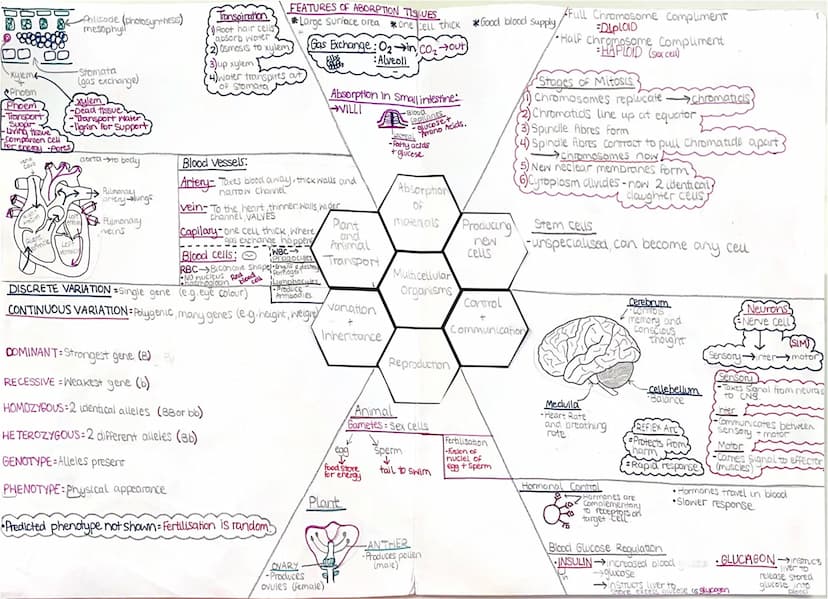 Palicode (photosynthesis)
mesophyll
Xylem
+
Phoem
Stomata
(gas exchange)
Phoem
-Transport
Sugar
-Living tissue
-Companion cell
for energy
-Pores
Xylem
-Dead tissue
-Transport water
-Lignin for support
Transpiration
1) Root hair cells
absorb water
2) Osmosis to xylem
3) up xylem
4) Water transpirts out
of stomata
FEATURES OF ABSORPTION TISSUES
*Large surface area *one cell thick *Good blood supply
Gas Exchange: O2→in CO2→out
Alveoli
Absorption in Small intestine:
→VILLI
Blood
capillaries
-glucose +
Amino Acids.
Lacteal
-Fatty acids
+ glucose
·Full Chromosome Compliment
=DIPLOID
·Half Chromosome Compliment
=HAPLOID (sex cell)
Stages of Mitosis
1) Chromosomes replicate → chromatids
2) Chromatids line up at equator
3) Spindle fibres form
4) Spindle fibres contract to pull chromatids apart
→chromosomes now
5) New nuclear membranes form
6) Cytoplasm divides - now 2 identical
daughter cells
Stem Cells
-unspecialised, can become any cell
aorta→to body
Pulmonary
artery→lungs
Pulmonary
veins
Blood Vessels:
Artery- Takes blood away, thick walls and
narrow channel
vein- To the heart, thinner walls, wider
channel, VALVES
Capillary- one cell thick where
gas exchange happens
Blood cells:
RBC→Biconcave shape
-NO nucleus
Red blood cell
WBC→
Phagocytes
Lymphocytes
-Produce
Antibodies
Absorption
of
materials
Plant
and
Animal
Transport
Producing
new
cells
Multicellular
Organisms
Variation
+
Inheritance
Control
+
Communication
Reproduction
DISCRETE VARIATION=Single gene (e.g. eye colour)
CONTINUOUS VARIATION=Polygenic, many genes (e.g. height, weight)
DOMINANT=Strongest gene (B)
RECESSIVE=Weakest gene (b)
HOMOZYGOUS=2 identical alleles (BB or bb)
HETEROZYGOUS=2 different alleles (Bb)
GENOTYPE=Alleles present
PHENOTYPE=Physical appearance
·Predicted phenotype not shown=Fertilisation is random
Animal
Gametes=sex cells
egg
food store
for energy
sperm
tail to swim
Fertilisation
-Fusion of
nuclei of
egg + sperm
Plant
ANTHER
-Produces pollen
(male)
OVARY
-Produces
ovules (female)
Cerebrum
-Controls
memory and
conscious
thought
Cellebellum
-Balance
Medulla
-Heart Rate
and breathing
rate
REFLEX ARC
-Protects from
harm
=Rapid response
Neurons
=Nerve cell
(SIM)
Sensory→inter→motor
Sensory
-Takes signal from
to CNS
Inter
-Communicates between
sensory + motor
Motor
-Carries signal to effector
(muscles)
Hormonal Control
·Hormones are
complementary
to receptors on
target cell
·Hormones travel in blood
·Slower response
Blood Glucose Regulation
·INSULIN→increased blood
glucose
→instructs liver to
store excess glucose as glycogen
·GLUCAGON→instructs
liver to
release stored
glucose into
blood